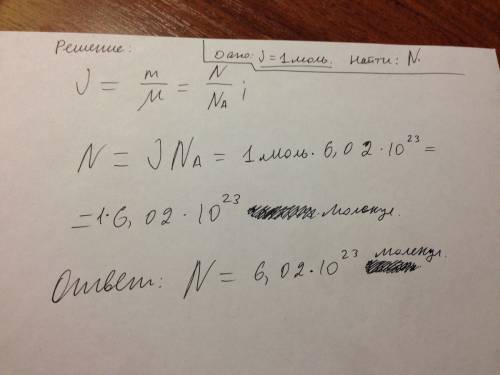 Решение: Дано: J = 1 моль. Найти: N.
J = m/M = N/N_A ;
N = J N_A = 1 моль · 6,02 · 10^23 =
= 1 · 6,02 · 10^23 молекул.
Ответ: N = 6,02 · 10^23 молекул.